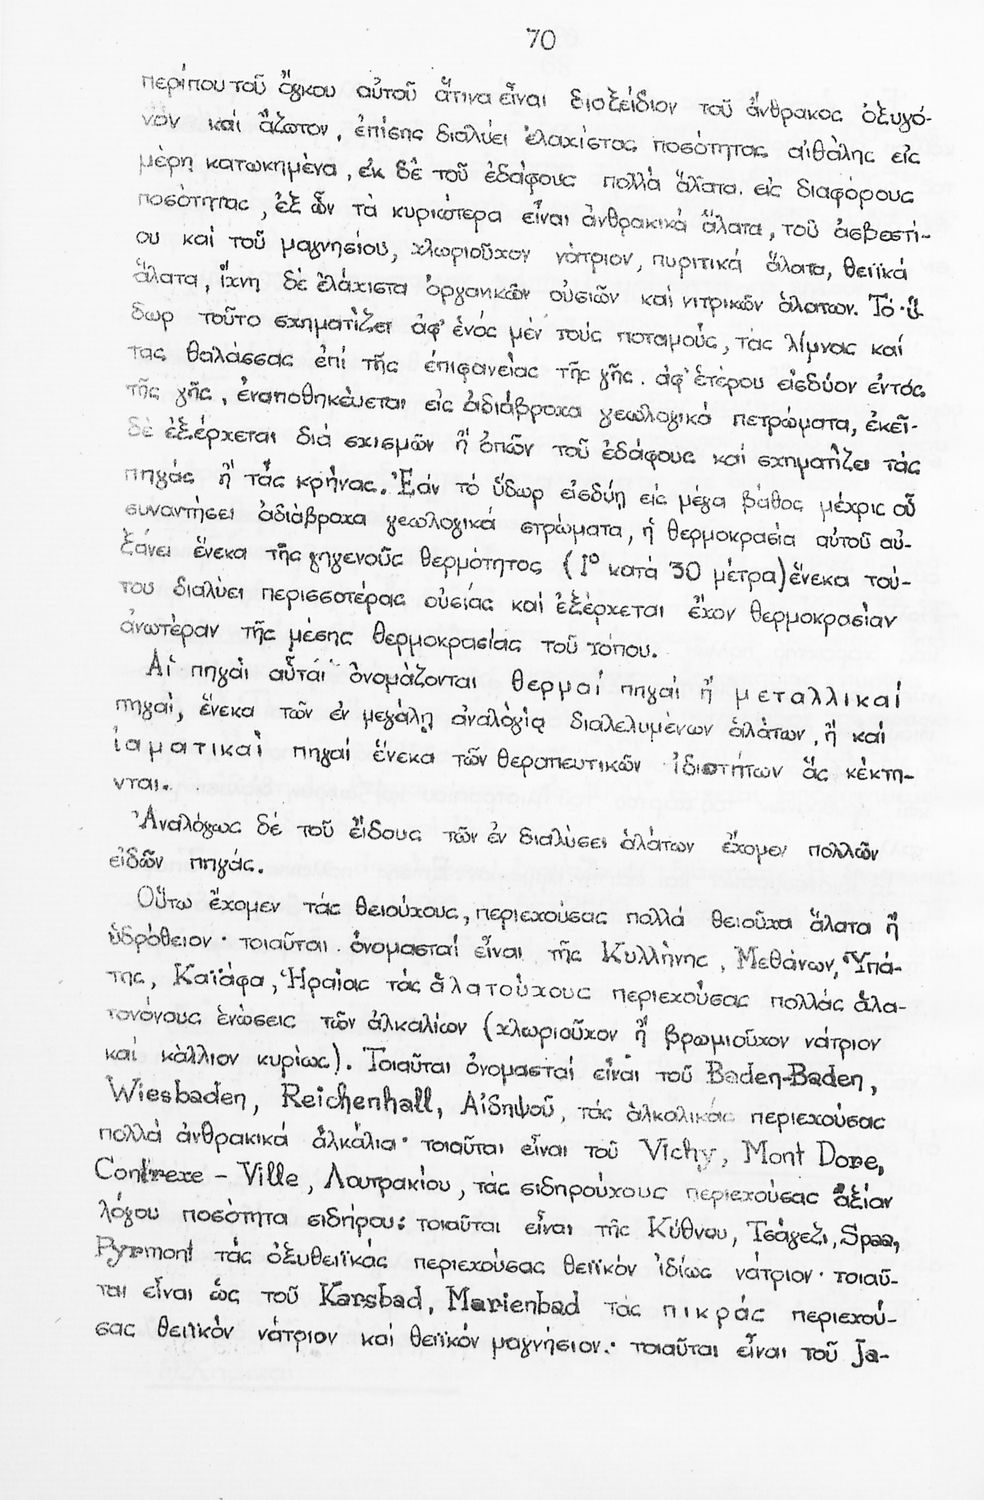 70
περίπου τοῦ ὄγκου αὐτοῦ ἅτινα εἶναι διοξείδιον τοῦ ἄνθρακος ὀξυγό-
νον καί ἄζωτον, ἐπίσης διαλύει ἐλαχίστας ποσότητας αἰθάλης εἰς
μέρη κατωκημένα, ἐκ δὲ τοῦ ἐδάφους πολλὰ ἅλατα. εἰς διαφόρους
ποσότητας, ἐξ ὧν τὰ κυριώτερα εἶναι ἀνθρακικά ἅλατα, τοῦ ἀσβεστί-
ου καί τοῦ μαγνησίου, χλωριοῦχον νάτριον, πυριτικά ἅλατα, θειϊκά
ἅλατα, ἴχνη δὲ ἐλάχιστα ὀργανικῶν οὐσιῶν καί νιτρικῶν ἁλάτων. Τό ὕ-
δωρ τοῦτο σχηματίζει ἀφ' ἑνός μέν τούς ποταμούς, τάς λίμνας καί
τας θαλάσσας ἐπί τῆς ἐπιφανείας τῆς γῆς. ἀφ' ἑτέρου εἰσδύον ἐντός
τῆς γῆς, ἐναποθηκεύεται εἰς ἀδιάβροχα γεωλογικά πετρώματα, ἐκεῖ-
δὲ ἐξέρχεται διά σχισμῶν ἤ ὀπῶν τοῦ ἐδάφους καί σχηματίζει τάς
πηγάς ἤ τάς κρήνας. Ἐάν τό ὕδωρ εἰσδύῃ εἰς μέγα βάθος μέχρις οὗ
συναντήσει ἀδιάβροχα γεωλογικά στρώματα, ἡ θερμοκρασία αὐτοῦ αὐ-
ξάνει ἕνεκα τῆς γηγενοῦς θερμότητος (1° κατά 30 μέτρα) ἕνεκα τού-
του διαλύει περισσοτέρας οὐσίας καί ἐξέρχεται ἔχον θερμοκρασίαν
ἀνωτέραν τῆς μέσης θερμοκρασίας τοῦ τόπου.
Αἱ πηγαί αὗται ὀνομάζονται θερμαί πηγαί ἤ μεταλλικαί
πηγαί, ἕνεκα τῶν ἐν μεγάλῃ ἀναλογίᾳ διαλελυμένων ἁλάτων, ἤ καί
ἰαματικαί πηγαί ἕνεκα τῶν θεραπευτικῶν ἰδιοτήτων ἅς κέκτη-
νται.
Ἀναλόγως δέ τοῦ εἴδους τῶν ἐν διαλύσει ἁλάτων ἔχομεν πολλῶν
εἰδῶν πηγάς.
Οὕτω ἔχομεν τάς θειούχους, περιεχούσας πολλά θειοῦχα ἅλατα ἤ
ὑδρόθειον· τοιαῦται ὀνομασταί εἶναι τῆς Κυλλήνης, Μεθάνων, Ὑπά-
της, Καϊάφα, Ἡραίας τάς ἁλατούχους περιεχούσας πολλάς ἁλα-
τονόνους ἑνώσεις τῶν ἀλκαλίων (χλωριοῦχον ἤ βρωμιοῦχον νάτριον
καί κάλλιον κυρίως). Τοιαῦται ὀνομασταί εἶναι τοῦ Baden-Baden,
Wiesbaden, Reichenhall, Αἰδηψοῦ, τάς ἀλκαλικάς περιεχούσας
πολλά ἀνθρακικά ἀλκάλια· τοιαῦται εἶναι τοῦ Vichy, Mont Dore,
Contrexe - Ville, Λουτρακίου, τάς σιδηρούχους περιεχούσας ἀξίαν
λόγου ποσότητα σιδήρου: τοιαῦται εἶναι τῆς Κύθνου, Τσάγεζι, Spaa,
Pyrmont τάς ὀξυθειϊκάς περιεχούσας θειϊκόν ἰδίως νάτριον· τοιαῦ-
ται εἶναι ὡς τοῦ Karsbad, Marienbad τάς πικράς περιεχού-
σας θειϊκόν νάτριον καί θειϊκόν μαγνήσιον.· τοιαῦται εἶναι τοῦ Ja-